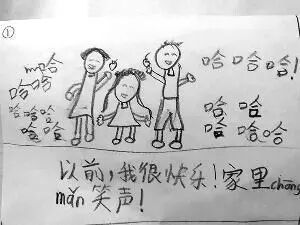 ①
哈
哈哈
哈哈哈
哈哈
哈哈哈!
哈哈
哈哈哈
以前,我很快乐!家里chōng
mǎn笑声!